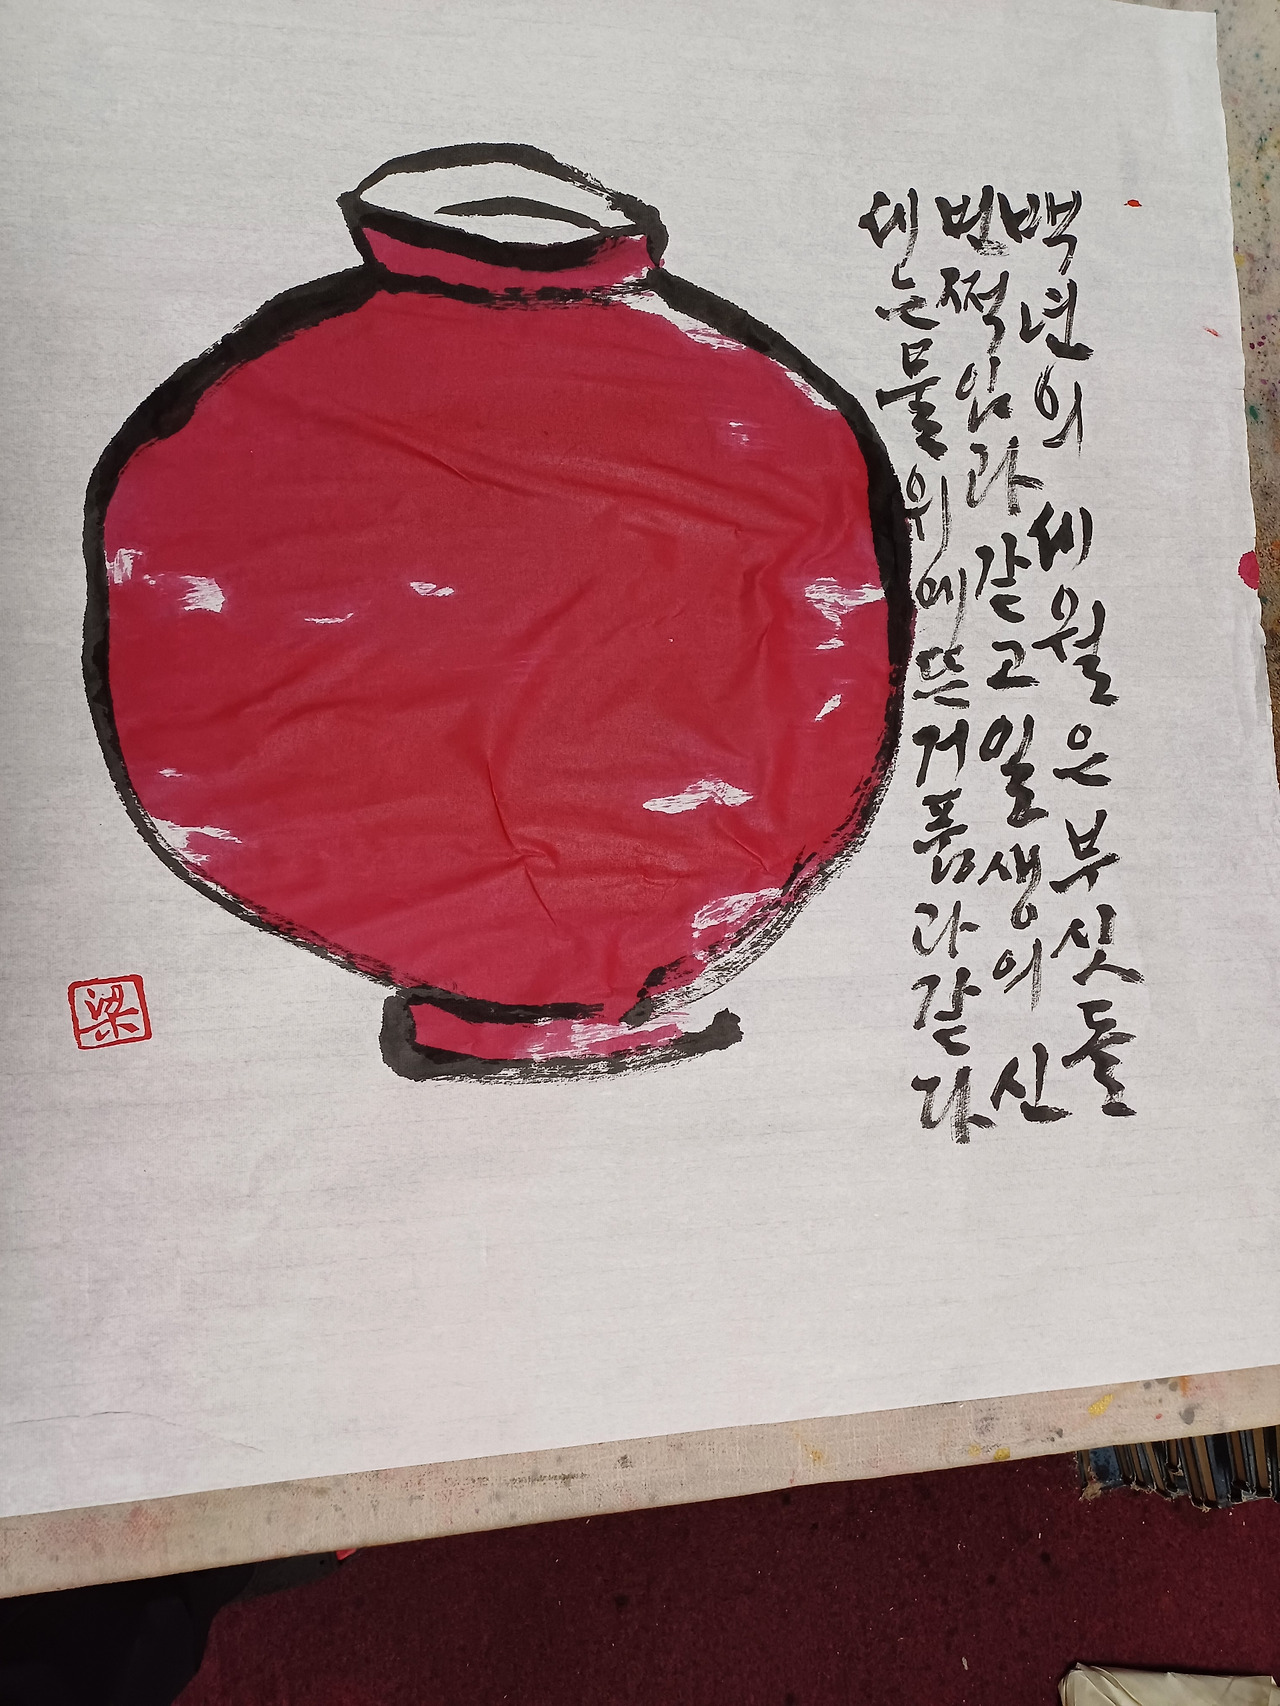 백년의 세월은 부싯돌
번쩍임과 같고 일생의 신
세는 물 위에 뜬 거품과 같다
梁